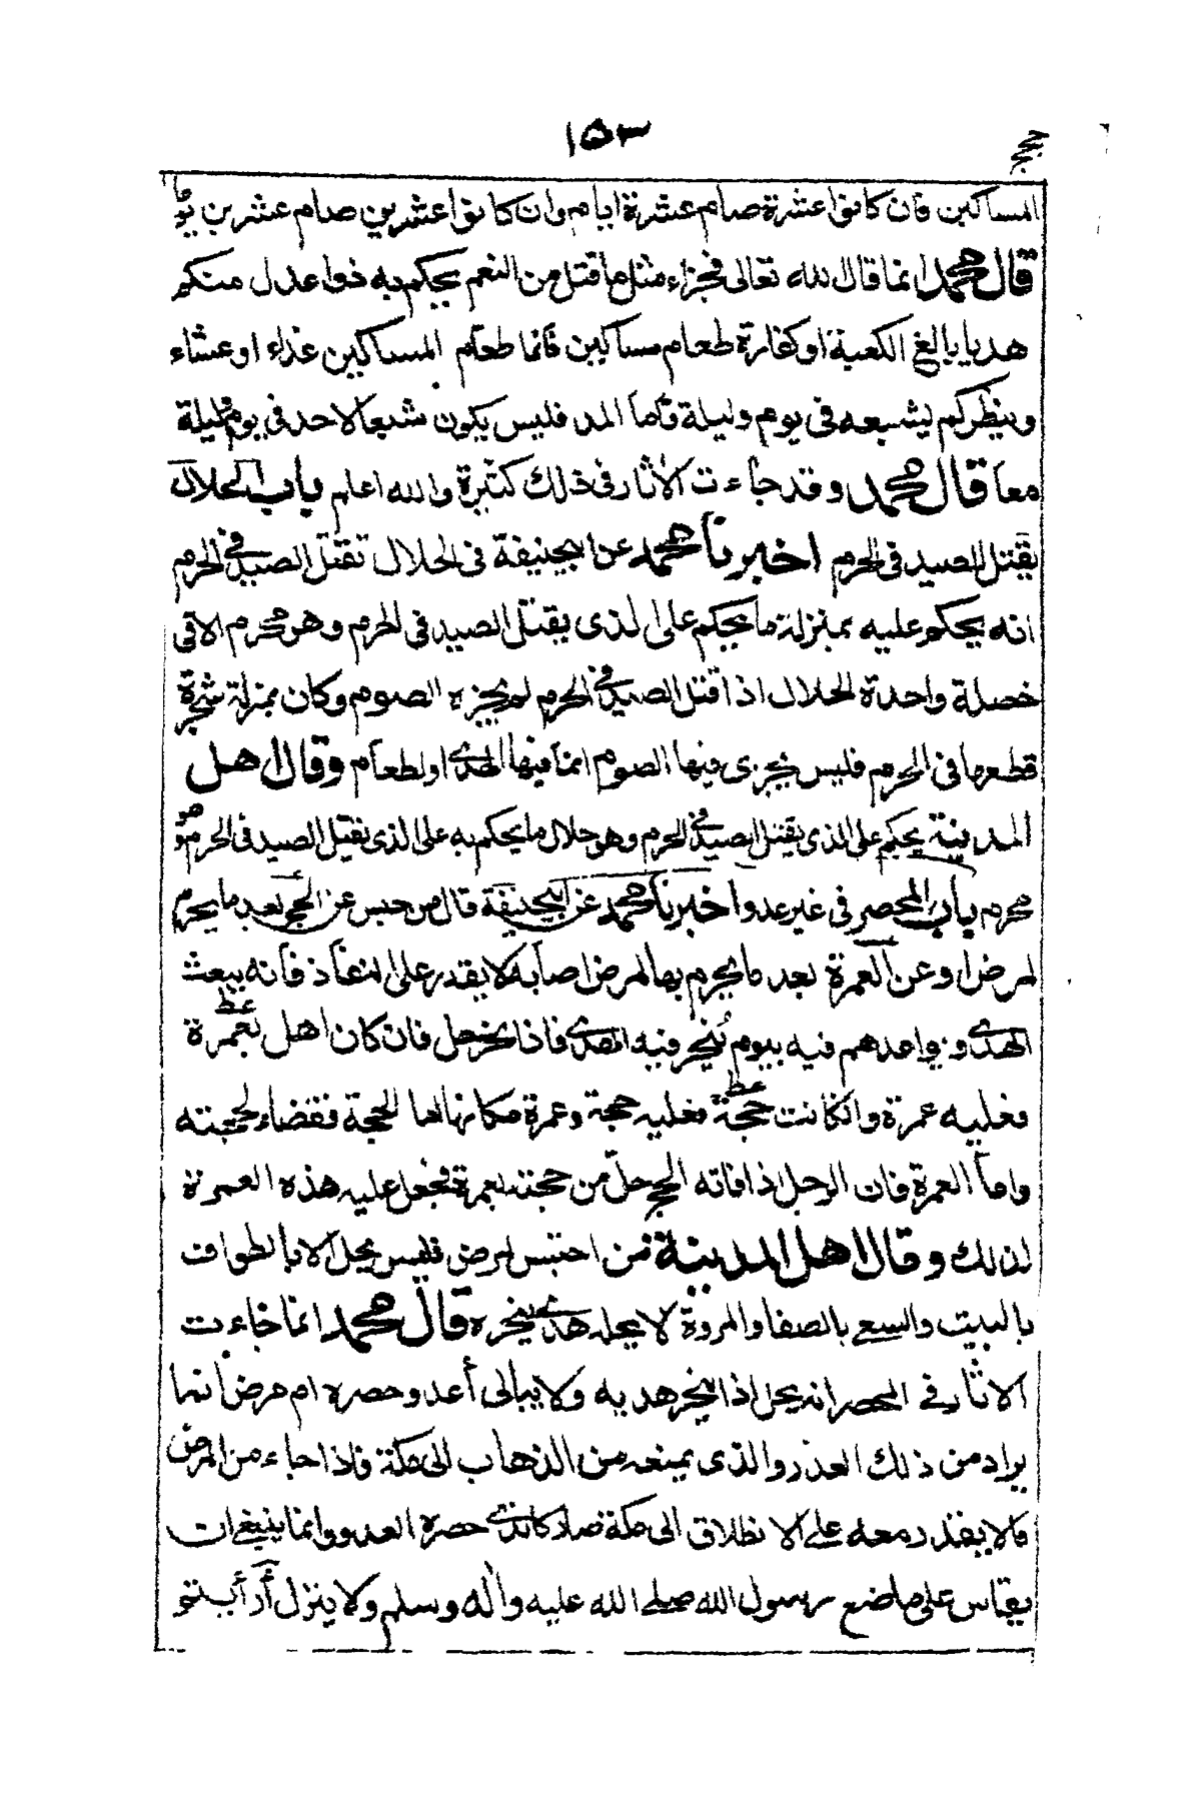 ١٥٣
حجج
المساكين فان كانوا عشرة صام عشرة ايام وان كانوا عشرين صام عشرين يوما
قال محمد انما قال الله تعالى فجزاء مثل ما قتل من النعم يحكم به ذوا عدل منكم
هديا بالغ الكعبة او كفارة طعام مساكين فانما طعام المساكين غداء او عشاء
وينظر كم يشبعه فى يوم وليلة فاما المد فليس يكون شبعا لاحد فى يوم وليلة
معا قال محمد وقد جاءت الاثار فى ذلك كثيرة والله اعلم باب الحلال
يقتل الصيد فى الحرم اخبرنا محمد عن ابيحنيفة فى الحلال تقتل الصيد فى الحرم
انه يحكم عليه بمنزلة ما يحكم على الذى يقتل الصيد فى الحرم وهو محرم الا فى
خصلة واحدة الحلال اذا قتل الصيد فى الحرم لم يجزه الصوم وكان بمنزلة شجرة
قطعها فى الحرم فليس يجزى فيها الصوم انما فيها الهدى او لطعام وقال اهل
المدينة يحكم على الذى يقتل الصيد فى الحرم وهو حلال ما يحكم به على الذى يقتل الصيد فى الحرم وهو
محرم باب المحصر فى غير عدو اخبرنا محمد عن ابيحنيفة قال من حبس عن الحج بعد ما يحرم
لمرض او عن العمرة بعد ما يحرم بها لمرض اصابه لا يقدر على النفاذ فانه يبعث
الهدى ويواعدهم فيه بيوم ينحر فيه الهدى فاذا نحر حل فان كان اهل بعمرة
فعليه عمرة وانكانت حجة فعليه حجة وعمرة مكانها اما الحجة فقضاء لحجته
واما العمرة فان الرجل اذا فاته الحج حل من حجته بعمرة فجعل عليه هذه العمرة
لذلك وقال اهل المدينة من احتبس لمرض فليس يحل الا بالطواف
بالبيت والسعى بالصفا والمروة لا يحله هدى ينحره قال محمد انما جاءت
الاثار فى المحصر انه يحل اذا نحر هديه ولا يبالى أعدو حصره ام مرض انما
يراد من ذلك العذر والذى يمنعه من الذهاب الى مكة فاذا جاء من المرض
مالا يقدر معه على الانطلاق الى مكة صار كالذى حصره العدو وانما ينبغى ان
يقاس على ما صنع رسول الله صلى الله عليه واله وسلم ولا ينزل